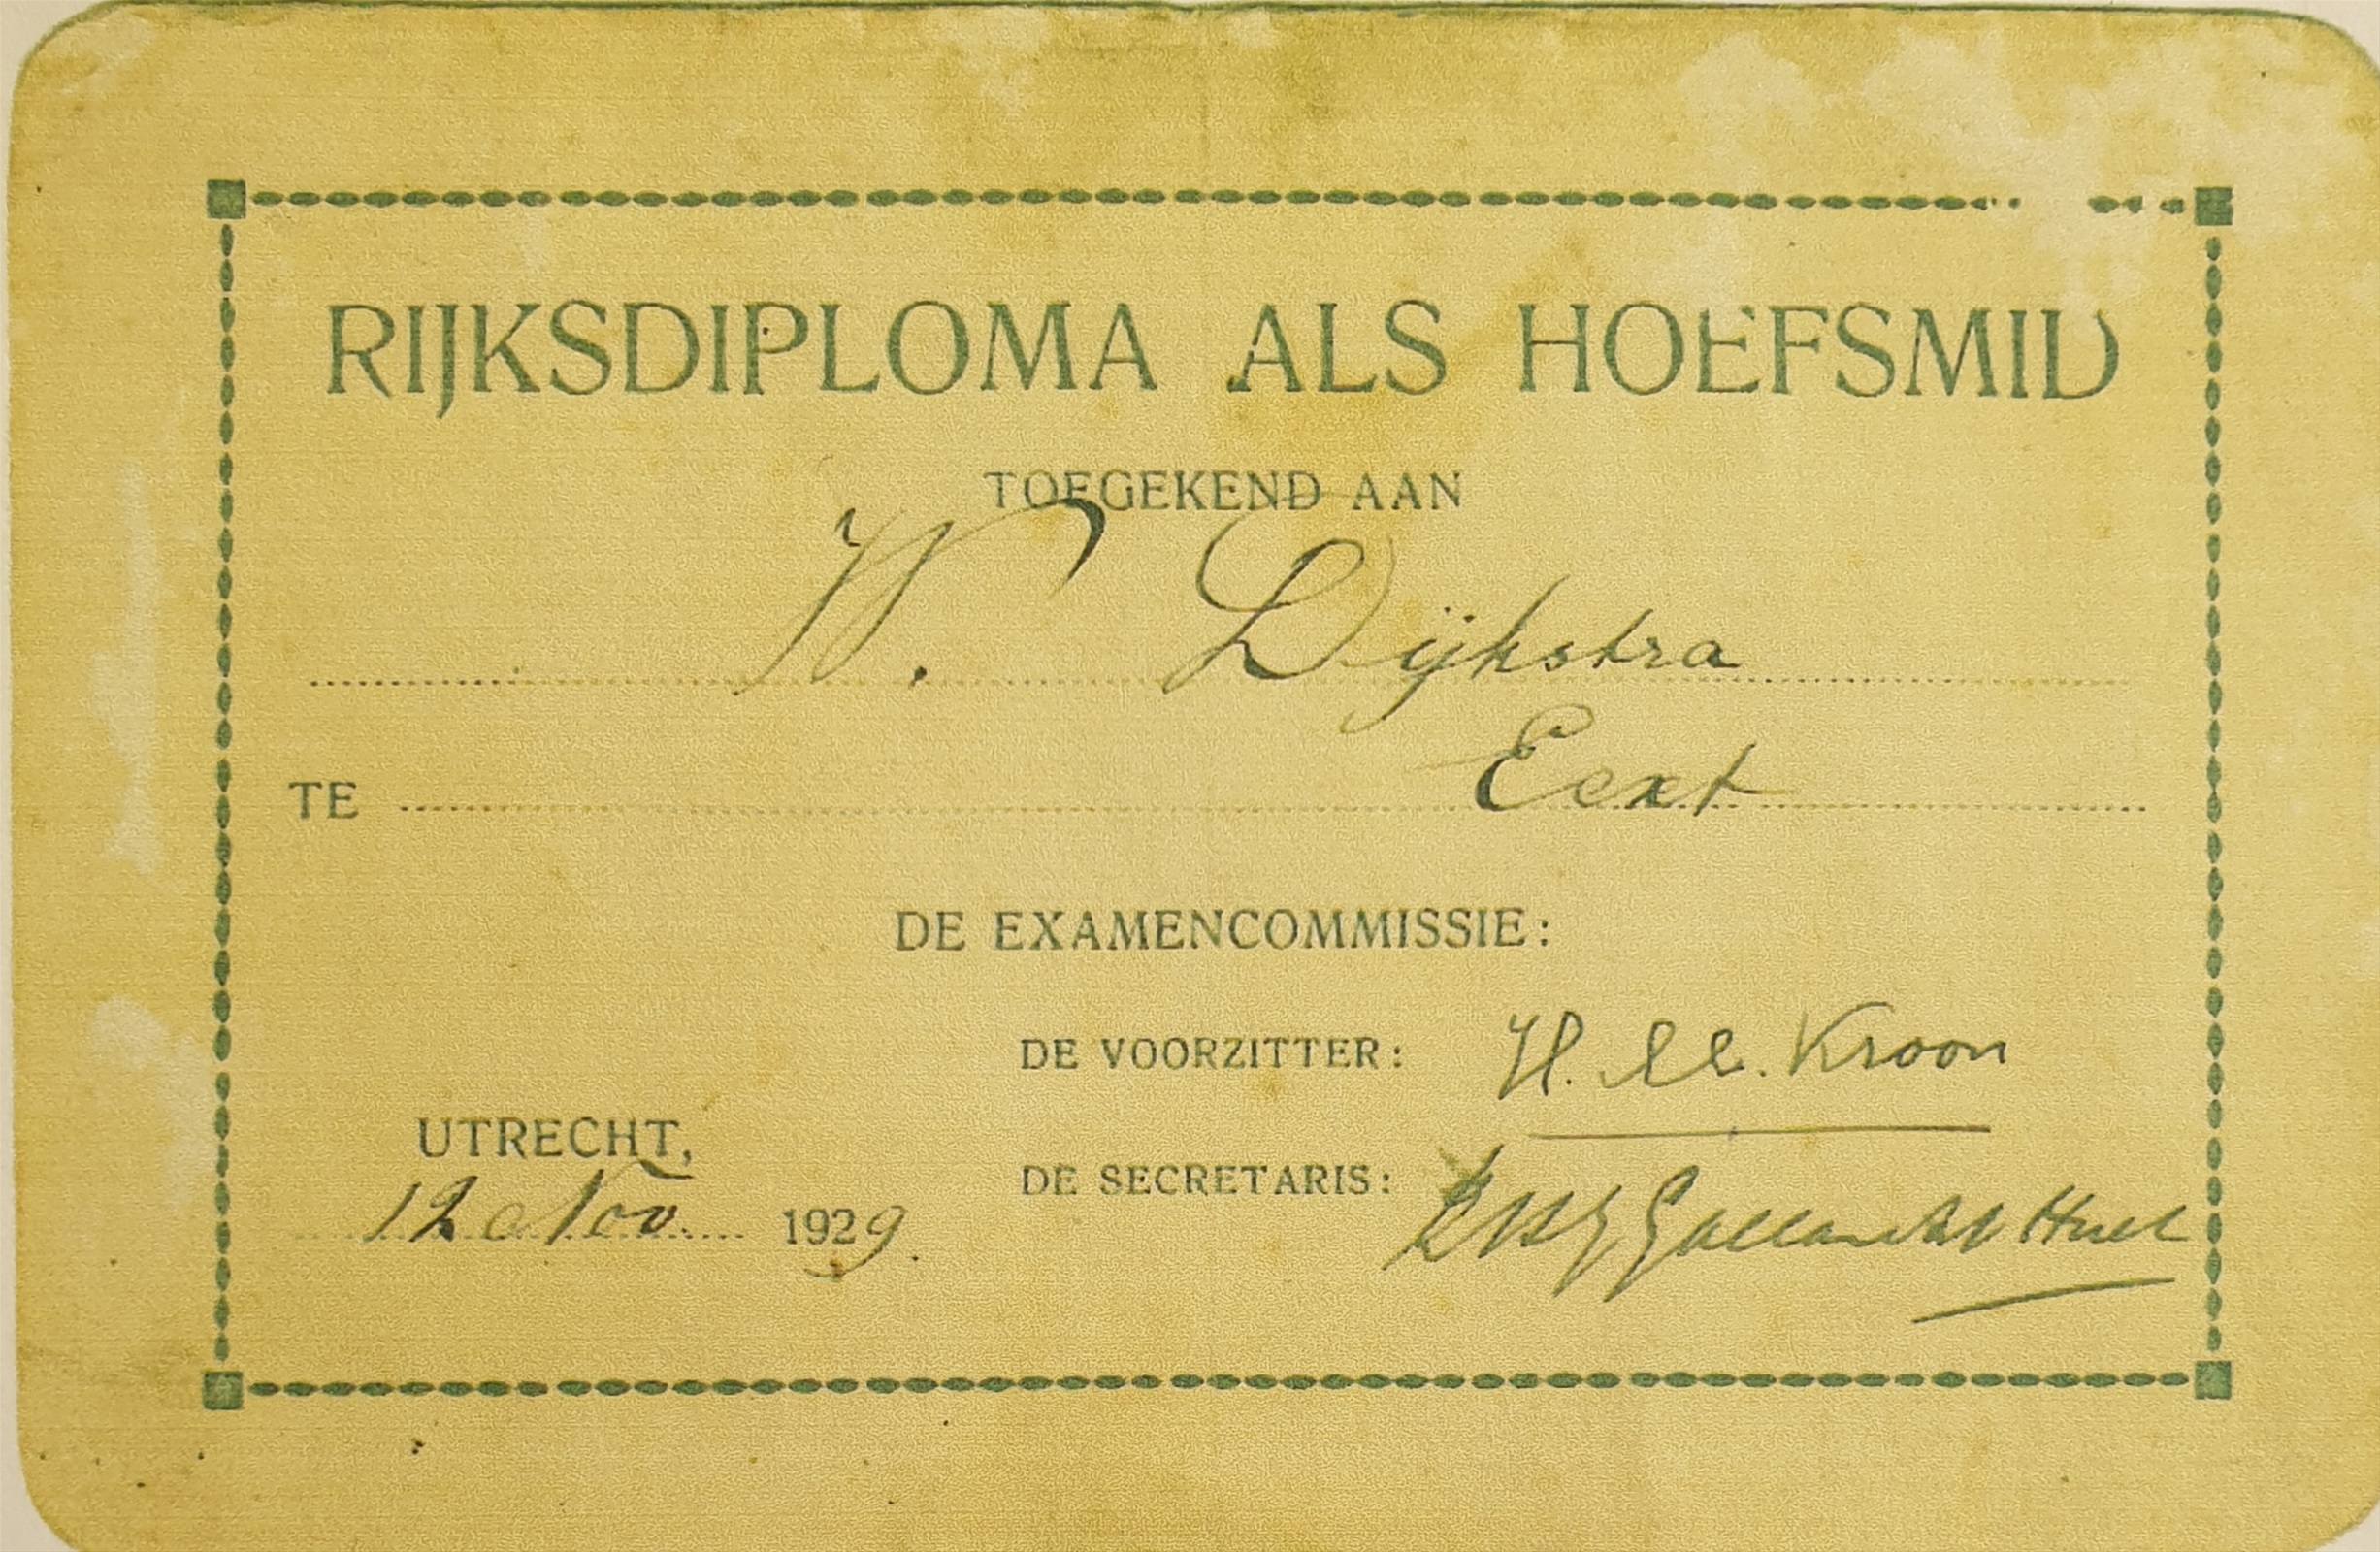 RIJKSDIPLOMA ALS HOEFSMID
TOEGEKEND AAN
W. Dijkstra
TE Eext
DE EXAMENCOMMISSIE:
DE VOORZITTER: H. M. Kroon
UTRECHT,
DE SECRETARIS: Gallandat Huet
12 Nov. 1929.